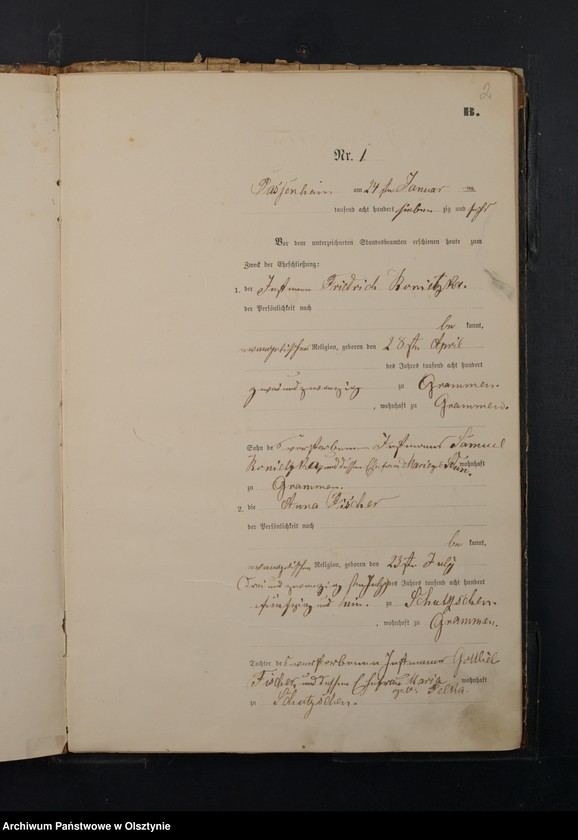 2.
B.
Nr. 1
Passenheim am 24ten Januar
tausend acht hundert sieben zig und sechs
Vor dem unterzeichneten Standesbeamten erschienen heute zum
Zweck der Eheschließung:
1. der Instmann Friedrich Konietzka.
der Persönlichkeit nach
be kannt,
evangelischer Religion, geboren den 28ten April
des Jahres tausend acht hundert
zwei und zwanzig zu Grammen.
, wohnhaft zu Grammen.
Sohn des verstorbenen Instmanns Samuel
Konietzka und dessen Ehefrau wohnhaft
zu Grammen.
2. die Anna Fischer
der Persönlichkeit nach
be kannt,
evangelischer Religion, geboren den 23ten July
des Jahres tausend acht hundert
zu
, wohnhaft zu Grammen.
Tochter des verstorbenen Instmanns Gottlieb
Fischer und dessen Ehefrau Maria wohnhaft
geb.
zu
Archiwum Państwowe w Olsztynie